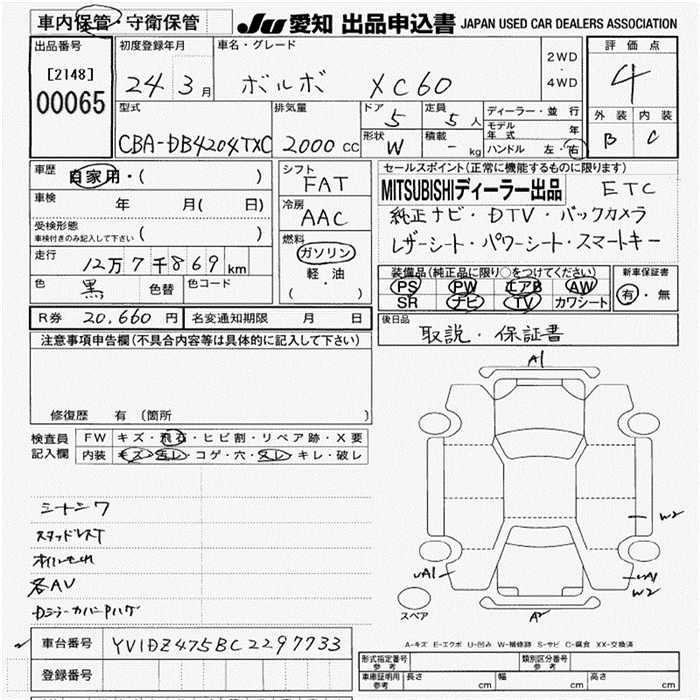 車内保管・守衛保管
JU 愛知 出品申込書 JAPAN USED CAR DEALERS ASSOCIATION
出品番号
[2148]
00065
初度登録年月
24年3月
車名・グレード
ボルボ XC60
2WD
・
4WD
評価点
4
外装 内装
B C
型式
CBA-DB4204TXC
排気量
2000 cc
ドア
5
定員
5人
形状
W
積載
- kg
ディーラー・並行
モデル年式 年
ハンドル 左・右
車歴
自家用・( )
車検
年 月( 日)
受検形態
車検付きのみ記入して下さい ( )
走行
12万7千869km
色
黒
色替
色コード
シフト
FAT
冷房
AAC
燃料
ガソリン
軽・油
( )
セールスポイント(正常に機能するものに限ります)
MITSUBISHIディーラー出品 ETC
純正ナビ・DTV・バックカメラ
レザーシート・パワーシート・スマートキー
装備品(純正品に限り○をつけてください)
PS PW エアB AW
SR ナビ TV カワシート
新車保証書
有・無
R券 20,660円
名変通知期限 月 日
後日品
取説・保証書
注意事項申告欄(不具合内容等は具体的に記入して下さい)
修復歴 有(箇所 )
検査員記入欄
FW キズ・飛石・ヒビ割・リペア跡・X要
内装 キズ・汚レ・コゲ・穴・スレ・キレ・破レ
シートシワ
スタッドレスT
オイルもれ
各AU
A1
W2
UA1
UA1
W2
A2
スペア
A-キズ E-エクボ U-凹み W-補修跡 S-サビ C-腐食 XX-交換済
車台番号 YV1DZ475BC2297733
登録番号
形式指定番号 参考
類別区分番号 参考
車庫証明用 参考 長さ cm 幅 cm 高さ cm